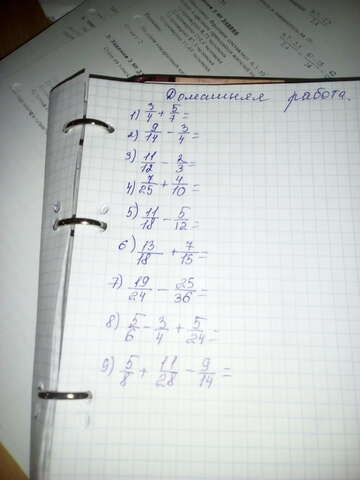 Домашняя работа.
1) 3/4 + 5/7 =
2) 9/14 - 3/4 =
3) 11/12 - 2/3 =
4) 7/25 + 4/10 =
5) 11/18 - 5/12 =
6) 13/18 + 7/15 =
7) 19/24 - 25/36 =
8) 5/6 - 3/4 + 5/24 =
9) 5/8 + 11/28 - 9/14 =